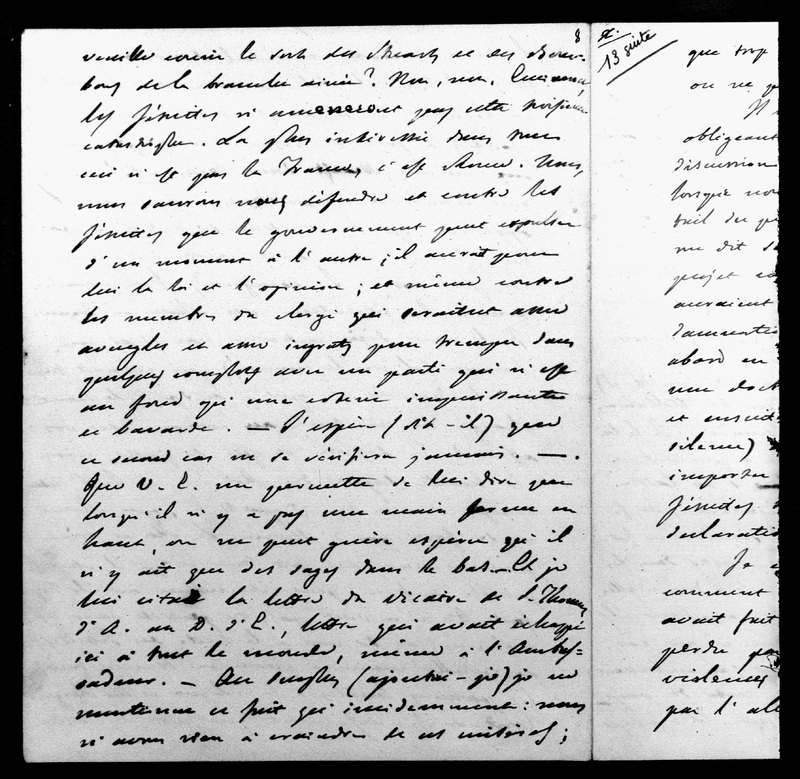 8
veuille courir le sort des Stuarts et des Bour-
bons de la branche ainée? Non, non. Ceci
les Jésuites n'amèneront pas cette
catastrophe. La plus intéressée dans tout
ceci n'est pas la France, c'est Rome. Nous,
nous saurons nous défendre et contre les
Jésuites que le gouvernement peut expulser
d'un moment à l'autre; il aurait pour
lui la loi et l'opinion; et même contre
les membres du clergé qui seraient assez
aveugles et assez ingrats pour tremper dans
quelques complots avec un parti qui n'est
au fond qu'une coterie impuissante
et bavarde. — J'espère (dit-il) que
ce second cas ne se vérifiera jamais. —.
Que V. E. me permette de lui dire que
lorsqu'il n'y a pas une main ferme en
haut, on ne peut guère espérer qu'il
n'y ait que des sages dans le bas. — Et je
lui citai la lettre du vicaire de S. Thomas
d'A. au D. d'E., lettre qui avait échappé
ici à tout le monde, même à l'Ambas-
sadeur. — Au surplus (ajoutai-je) je ne
mentionne ce fait qu'incidemment: nous
n'avons rien à craindre de ces misères;
13 suite
que trop
ou ne
obligeant
discussion
lorsque
me dit
projet
auraient
abord
une
et ensuite
silence)
importer
Jésuites
déclarati
Je
comment
avait fait
perdre
violences
par l'